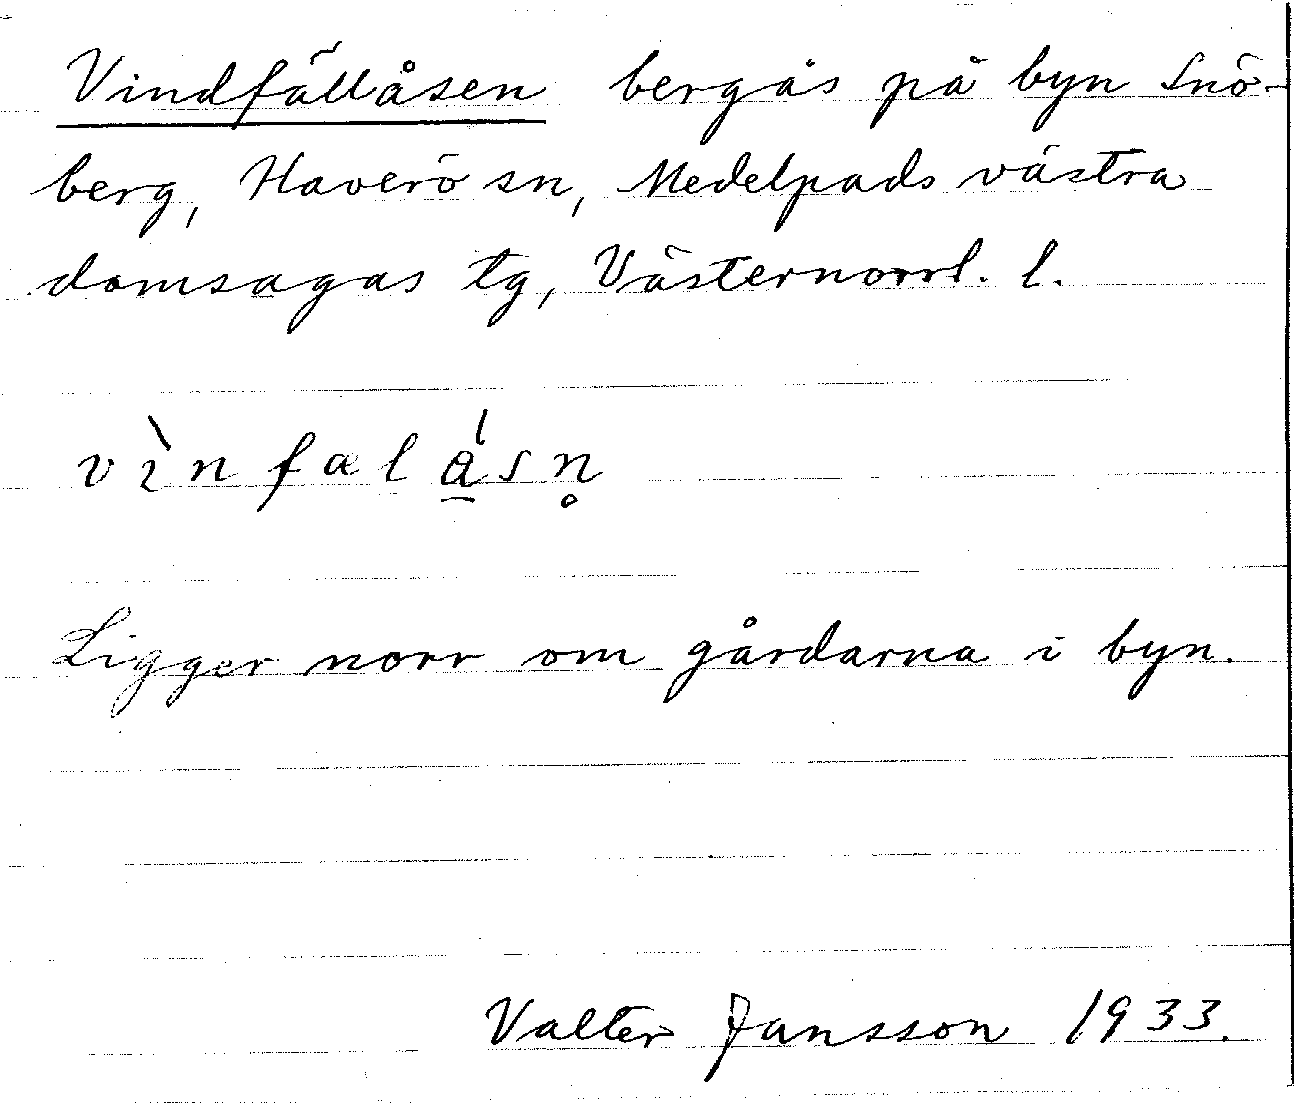 Vindfällåsen bergås på byn Snö-
berg, Haverö sn, Medelpads västra
domsagas tg, Västernorrl. l.
vìnfælǻ̱sn̥
Ligger norr om gårdarna i byn.
Valter Jansson 1933.